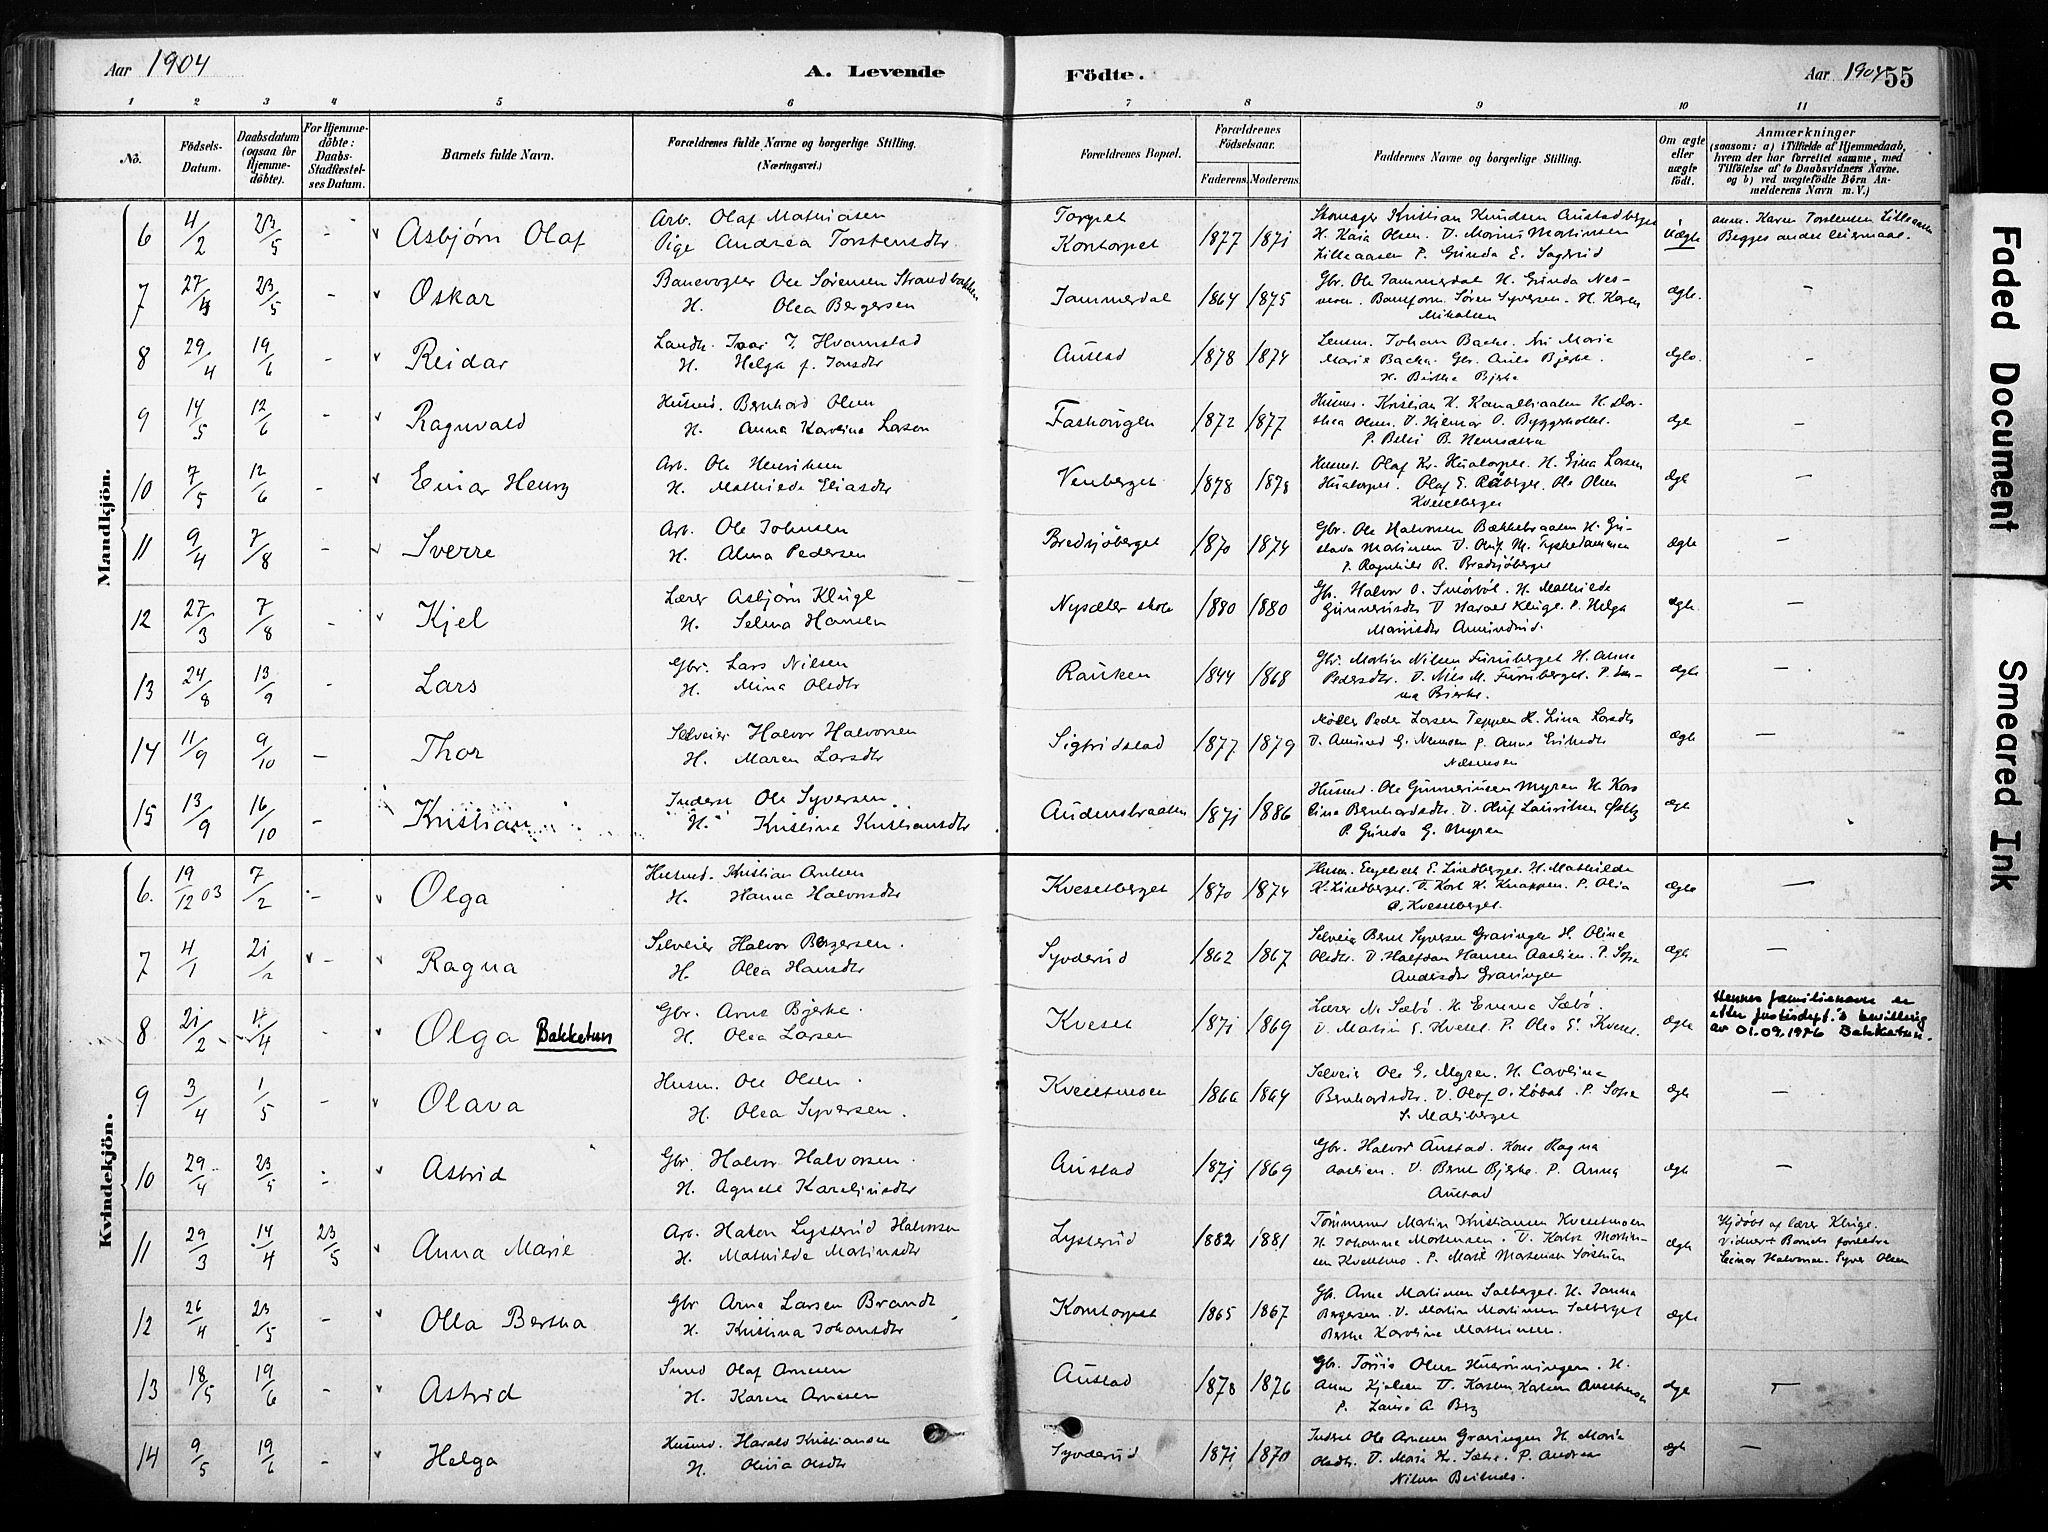 Aar 1904
A. Levende
Födte.
Aar 1904 55
1 2 3 4 5 6 7 8 9 10 11
No.
Födsels-
Datum.
Daabsdatum
(ogsaa for
Hjemme-
döbte).
For Hjemme-
döbte:
Daabs-
Stadfæstel-
ses Datum.
Barnets fulde Navn.
Forældrenes fulde Navne og borgerlige Stilling.
(Næringsvei.)
Forældrenes Bopæl.
Forældrenes
Födselsaar.
Faderens. Moderens.
Faddernes Navne og borgerlige Stilling.
Om ægte
eller
uægte
födt.
Anmærkninger
(saasom: a) i Tilfælde af Hjemmedaab,
hvem der har forrettet samme, med
Tilföielse af to Daabsvidners Navne.
og b) ved uægtefödte Börn An-
melderens Navn m. V.)
Mandkjön.
6 4/2 23/5 - Asbjørn Olaf
Arb. Olaf Mathiasen
Pige Andrea Torstensdtr.
Torpet
Kontorpet
1877 1871
Kristian Knudsen Austadberget
H. Kaia Olsen. V. Marius Martinsen
Lilleaasen P. Gunda E. Sagerud
Uægte
anm. Karen Torstensen Lilleaasen
Begges andet leiermaal.
7 27/4 23/5 - Oskar
Banevogter Ole Sørensen Strandbakken
H. Olea Bergersen
Tammerdal
1864 1875
Gbr. Ole Tammerdal H. Gunda Nes-
moen. Søren Syversen. H. Karen
Mikalsen
ægte. -
8 29/4 19/6 - Reidar
Ivar J. Hvamstad
H. Helga f. Jonsdtr
Austad
1878 1874
Lensm. Johan Bache. Frk Marie
Marie Bache. Gbr. Bjerke.
H. Birthe Bjerke
ægte. -
9 14/5 12/6 - Ragnvald
Husmd. Bernhard Olsen
H. Anna Karoline Larsen
Faskougen
1872 1877
Husm. Kristian H. H. Dor-
thea Olsen. V. Hjemar O.
P. B.
ægte -
10 7/5 12/6 - Einar Henry
Arb. Ole Henriksen
H. Mathilde Eliasdtr
Venberget
1878 1878
Husmd. Olaf Kr. Hualorpet. H. Eina Larsen
Hualorpet. Olaf E. Råberget. Ole Olsen
Kveselberget
ægte -
11 9/4 7/8 - Sverre
Arb. Ole Johnsen
H. Alma Pedersen
Bredsjöberget
1870 1874
Gbr. Ole Halvorsen Bækkebraaten H. Gu-
stava V. Oluf M.
P. Ragnhild R. Bredsjöberget
ægte -
12 27/3 7/8 - Kjel
Lærer Asbjørn Kluge
H. Selma Hansen
Nysæter skole
1880 1880
Gb. Halvor O. Smörböl. H. Mathilde
Gunnerusdtr V. Harald Kluge. P. Helga
Mariusdtr Amundrud.
ægte -
13 24/8 13/9 - Lars
Gbr. Lars Nilsen
H. Mina Olsdtr
Rauken
1844 1868
Gbr. Martin Nilsen Furuberget H. Anne
Pedersdtr. V. Nils M. Furuberget. P. Em-
ma Bjerke.
ægte -
14 11/9 9/10 - Thor
Selveier Halvor Halvorsen
H. Maren Larsdtr
Sigfridstad
1877 1879
Møller Peder Larsen Teppen H. Lina Larsdtr
V. Amund G. Nemoen P. Anne Eriksdtr
Næsmoen
ægte -
15 13/9 16/10 - Kristian
Inderst Ole Syversen
H. Kristine Kristiansdtr
Audensbraaten
1871 1886
Husmd. Ole Gunneriusen Myren H. Karo
lina Bernhardsdtr. V. Oluf Lauritsen Østby
P. Gunda G. Myren
ægte -
Kvindekjön.
6. 19/12 03 7/2 - Olga
Husmd. Kristian Arntsen
H. Hanna Halvorsdtr
Kveselberget
1870 1874
Husm. Engebret E. Lindberget. H. Mathilde
K. Lindberget. V. Karl H. Knappen. P. Olia
A. Kveselberget.
ægte -
7 4/1 21/2 - Ragna
Selveier Halvor Bergersen.
H. Olea Hansdtr
Syvderud
1862 1867
Selveier Bernt Syversen Gravingen H. Oline
Olsdtr. V. Halfdan Hansen Aaslien. P. Sofie
Andersdtr Gravingen
ægte -
8 21/2 4/4 - Olga Bakketun
Gbr. Arne Bjerke.
H. Olea Larsen
Kvesel
1871 1869
Lærer N. Sæbö. H. Emma Sæbö.
V. Martin E. Kvesel. P. Olea E. Kvesel.
ægte
Hennes familienavn er
etter justisdept.'s bevilling
av 01.09.1986 Bakketun.
9 3/4 1/5 - Olava
Husm. Ole Olsen.
H. Olea Syversen.
Kveselmoen
1866 1864
Selveier Ole G. Myren. H. Carolina
Bernhardsdtr. V. Olaf O. Löbal. P. Sofie
S. Maliberget
ægte -
10 29/4 23/5 - Astrid
Gbr. Halvor Halvorsen.
H. Agnete Karelinsdtr
Austad
1871 1869
Gbr. Halvor Austad. Kone Ragna
Aaslien. V. Bernt Bjerke. P. Anna
Austad
ægte -
11 29/3 14/4 23/5 Anna Marie
Arb. Hakon Lysterud Halvorsen
H. Mathilde Martinsdtr
Lysterud
1882 1881
Tömmermd Martin Kristiansen Kveselmoen
H. Johanne Mortensen. V. Karl Martin-
sen Kveselmo. P. Marte Martensen
ægte
Hjdöbt af lærer Kluge.
Vidner: Barnets forældre
Einar Halvorsen. Syver Olsen
12 26/4 23/5 - Olla Bertha
Gbr Arne Larsen Brandt
H. Kristina Johansdtr
Kontorpet
1865 1867
Gb. Arne Matiesen Solberget. H. Janna
Bergersen. V. Martin Martinsen Solberget
Berthe Karoline Mathiesen.
ægte -
13 18/5 19/6 - Astrid
Smed Olaf Arnesen
H. Karen Arnesen
Austad
1878 1876
Gbr. Olsen Husrønningen. H.
Anne Kjelsen V. Karsten Karlsen
P. Laura A. Berg
ægte -
14 9/5 19/6 - Helga
Husmd. Harald Kristiansen
H. Olivia Olsdtr
Syvderud
1871 1870
Inderst Ole Arnesen Gravingen H. Marie
Olsdtr. V. Kr. Sæter. P. Andrea
Nilsen
ægte -
Faded Document
Smeared Ink